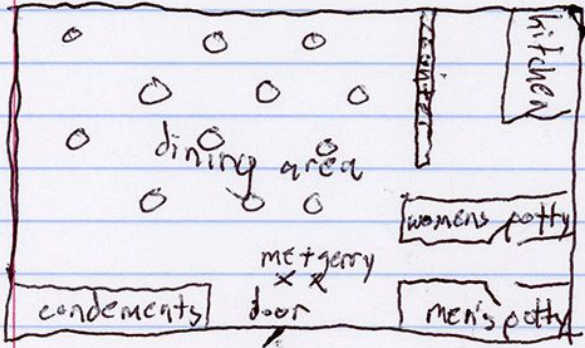 kitchen
counter
dining area
womens potty
me + gerry
x x
condements
door
men's potty